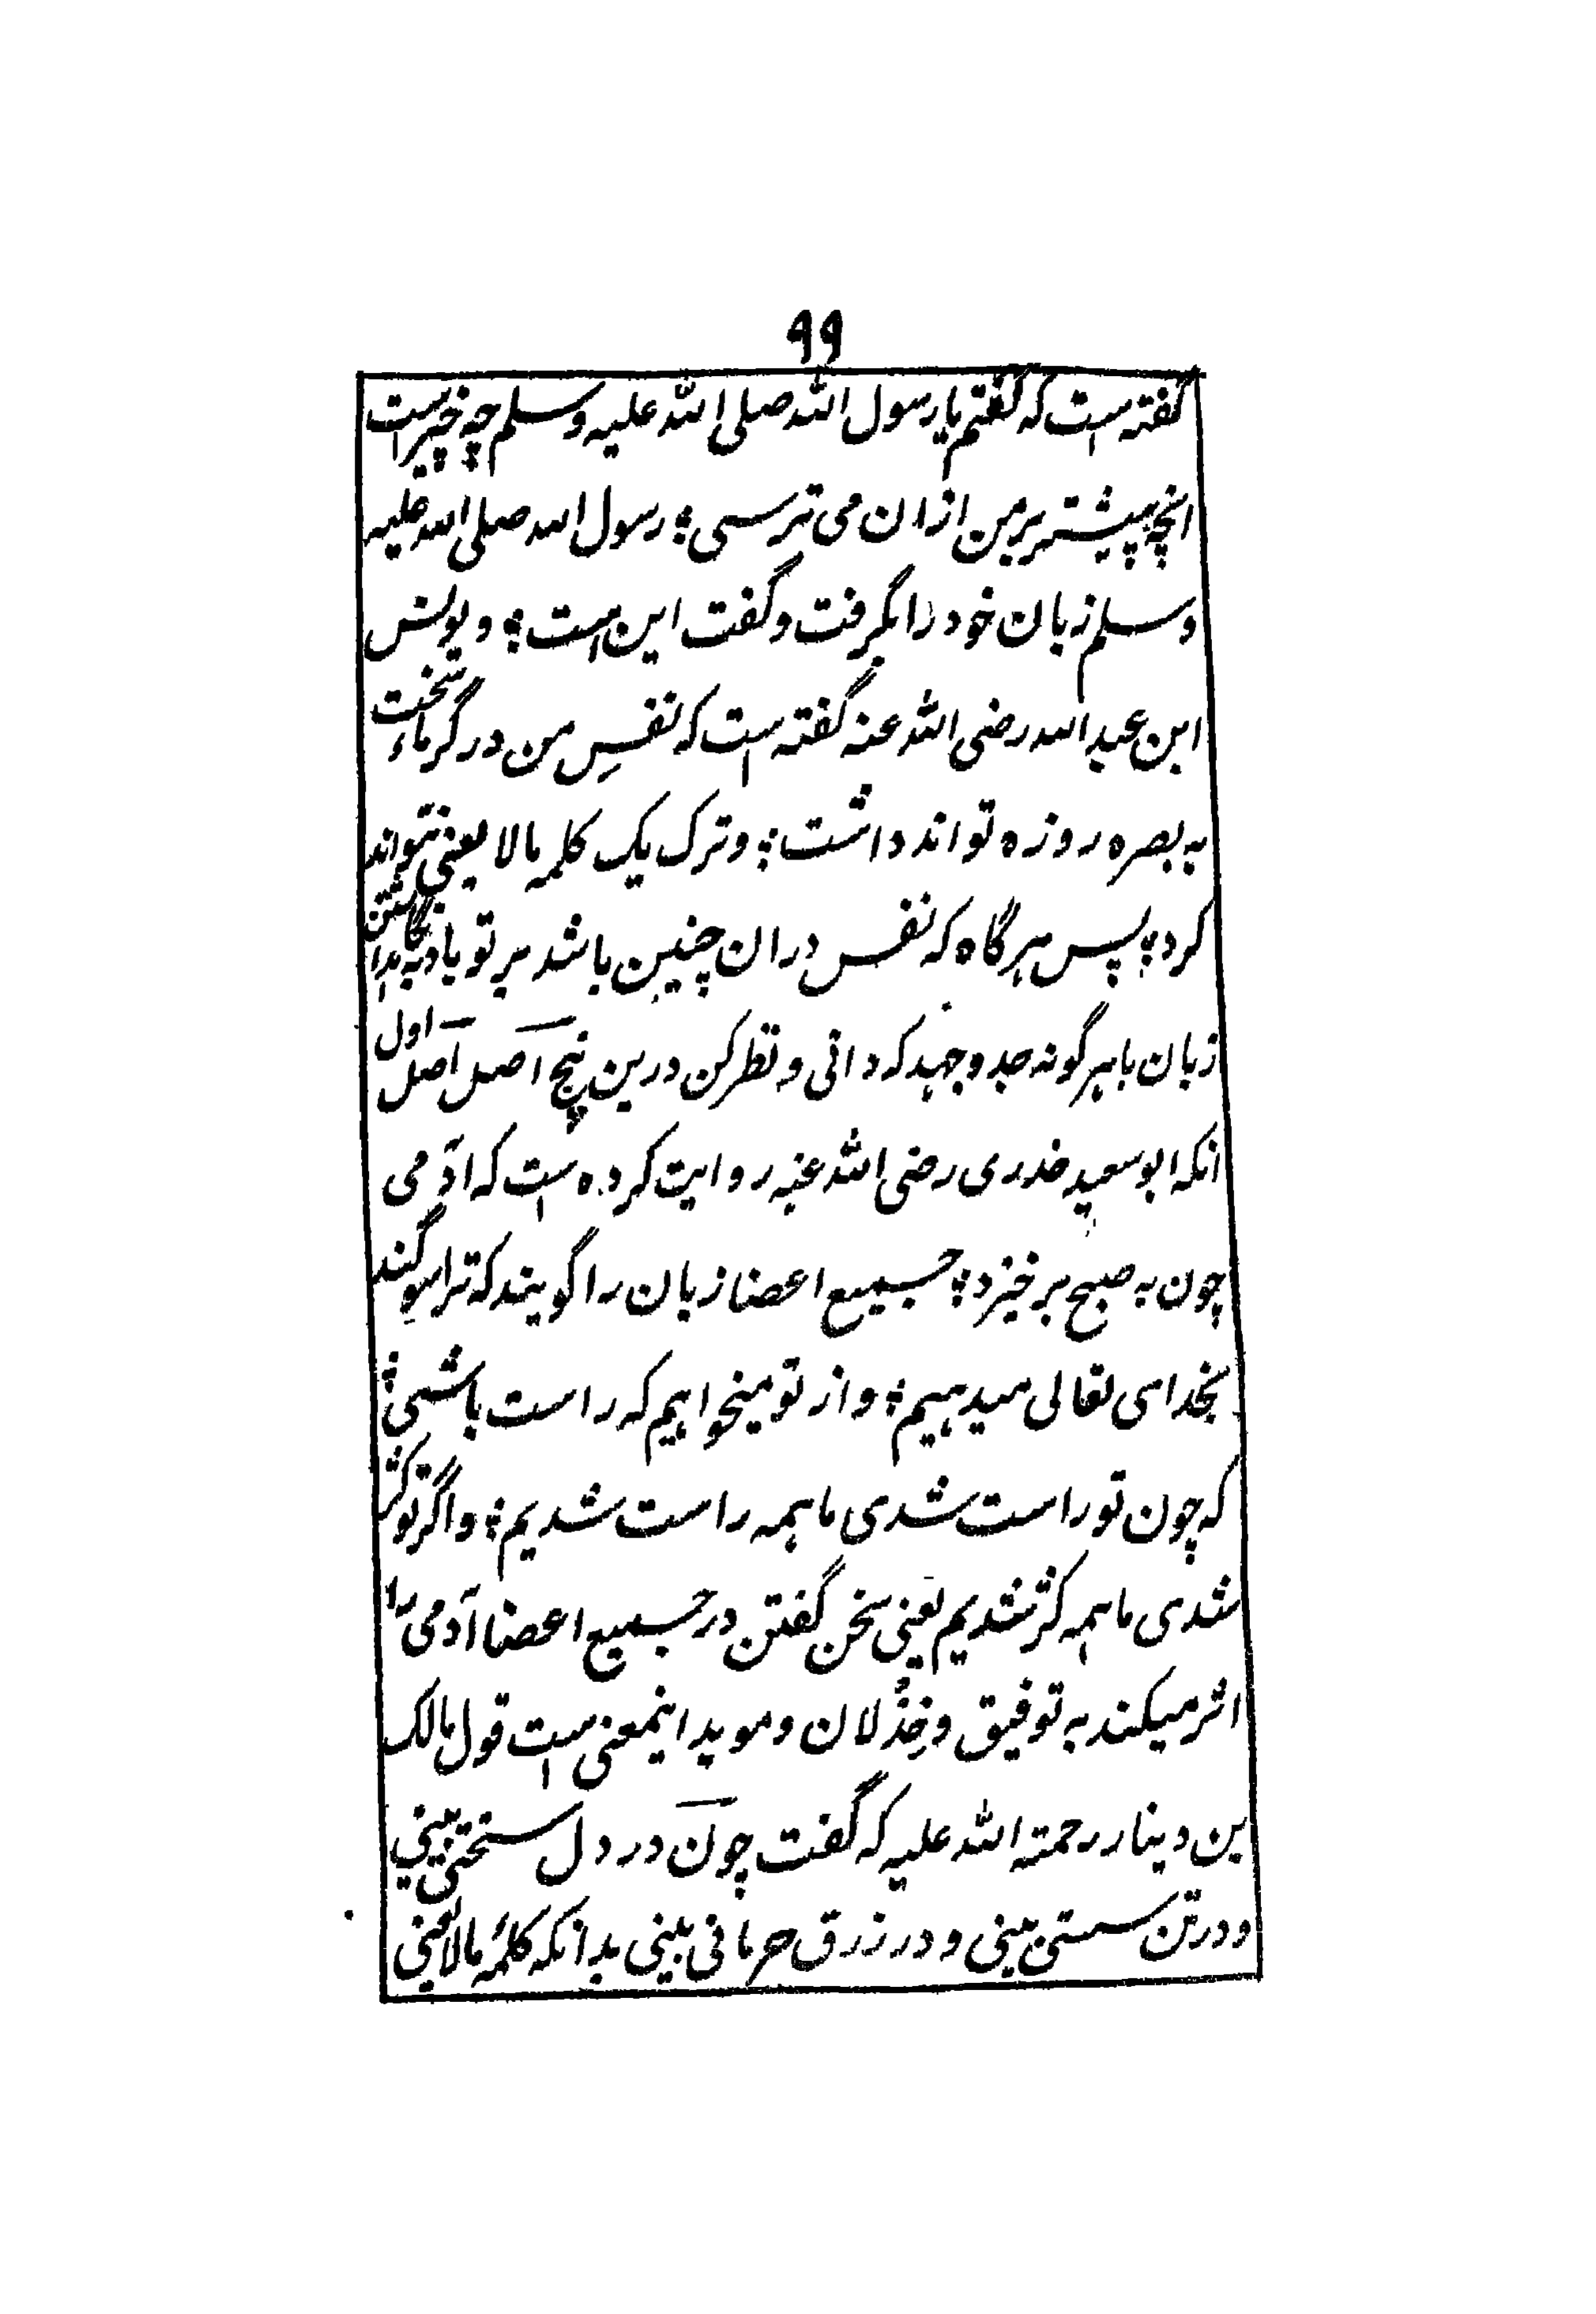 ۹۹
گفته است که گفتم یا رسول الله صلی الله علیه وسلم چه چیز است
انچه پیشتر بر من ازان می ترسی؛ رسول الله صلی الله علیه
وسلم زبان خود را بگرفت و گفت این است؛ و یونس
ابن عبد الله رضی الله عنه گفته است که نفسِ من در گرماء سخت
به بصره روزه تواند داشت؛ و ترک یک کلمه مالا یعنی نتواند
کرد؛ پس هرگاه که نفس دران چنین باشد بر تو باد به نگاهداشتن
زبان باهر گونه جد و جهد که دانی و نظر کن درین پنج اصل اصل اول
انکه ابو سعید خدری رضی الله عنه روایت کرده است که ادمی
چون به صبح بر خیزد؛ جمیع اعضا زبان را گویند که ترا سوگند
بخدای تعالی میدهیم؛ و از تو میخواهیم که راست باشی؛
که چون تو راست شدی ما همه راست شدیم؛ و اگر تو کژ
شدی ما همه کژ شدیم یعنی سخن گفتن در جمیع اعضا آدمی را
اثر میکند به توفیق و خِذْلان و موید اینمعنی است قول مالک
بن دینار رحمته الله علیه که گفت چون در دل سختی بینی
و در تن سستی بینی و در رزق حرمانی بینی بدانکه کلمهٔ مالا یعنی